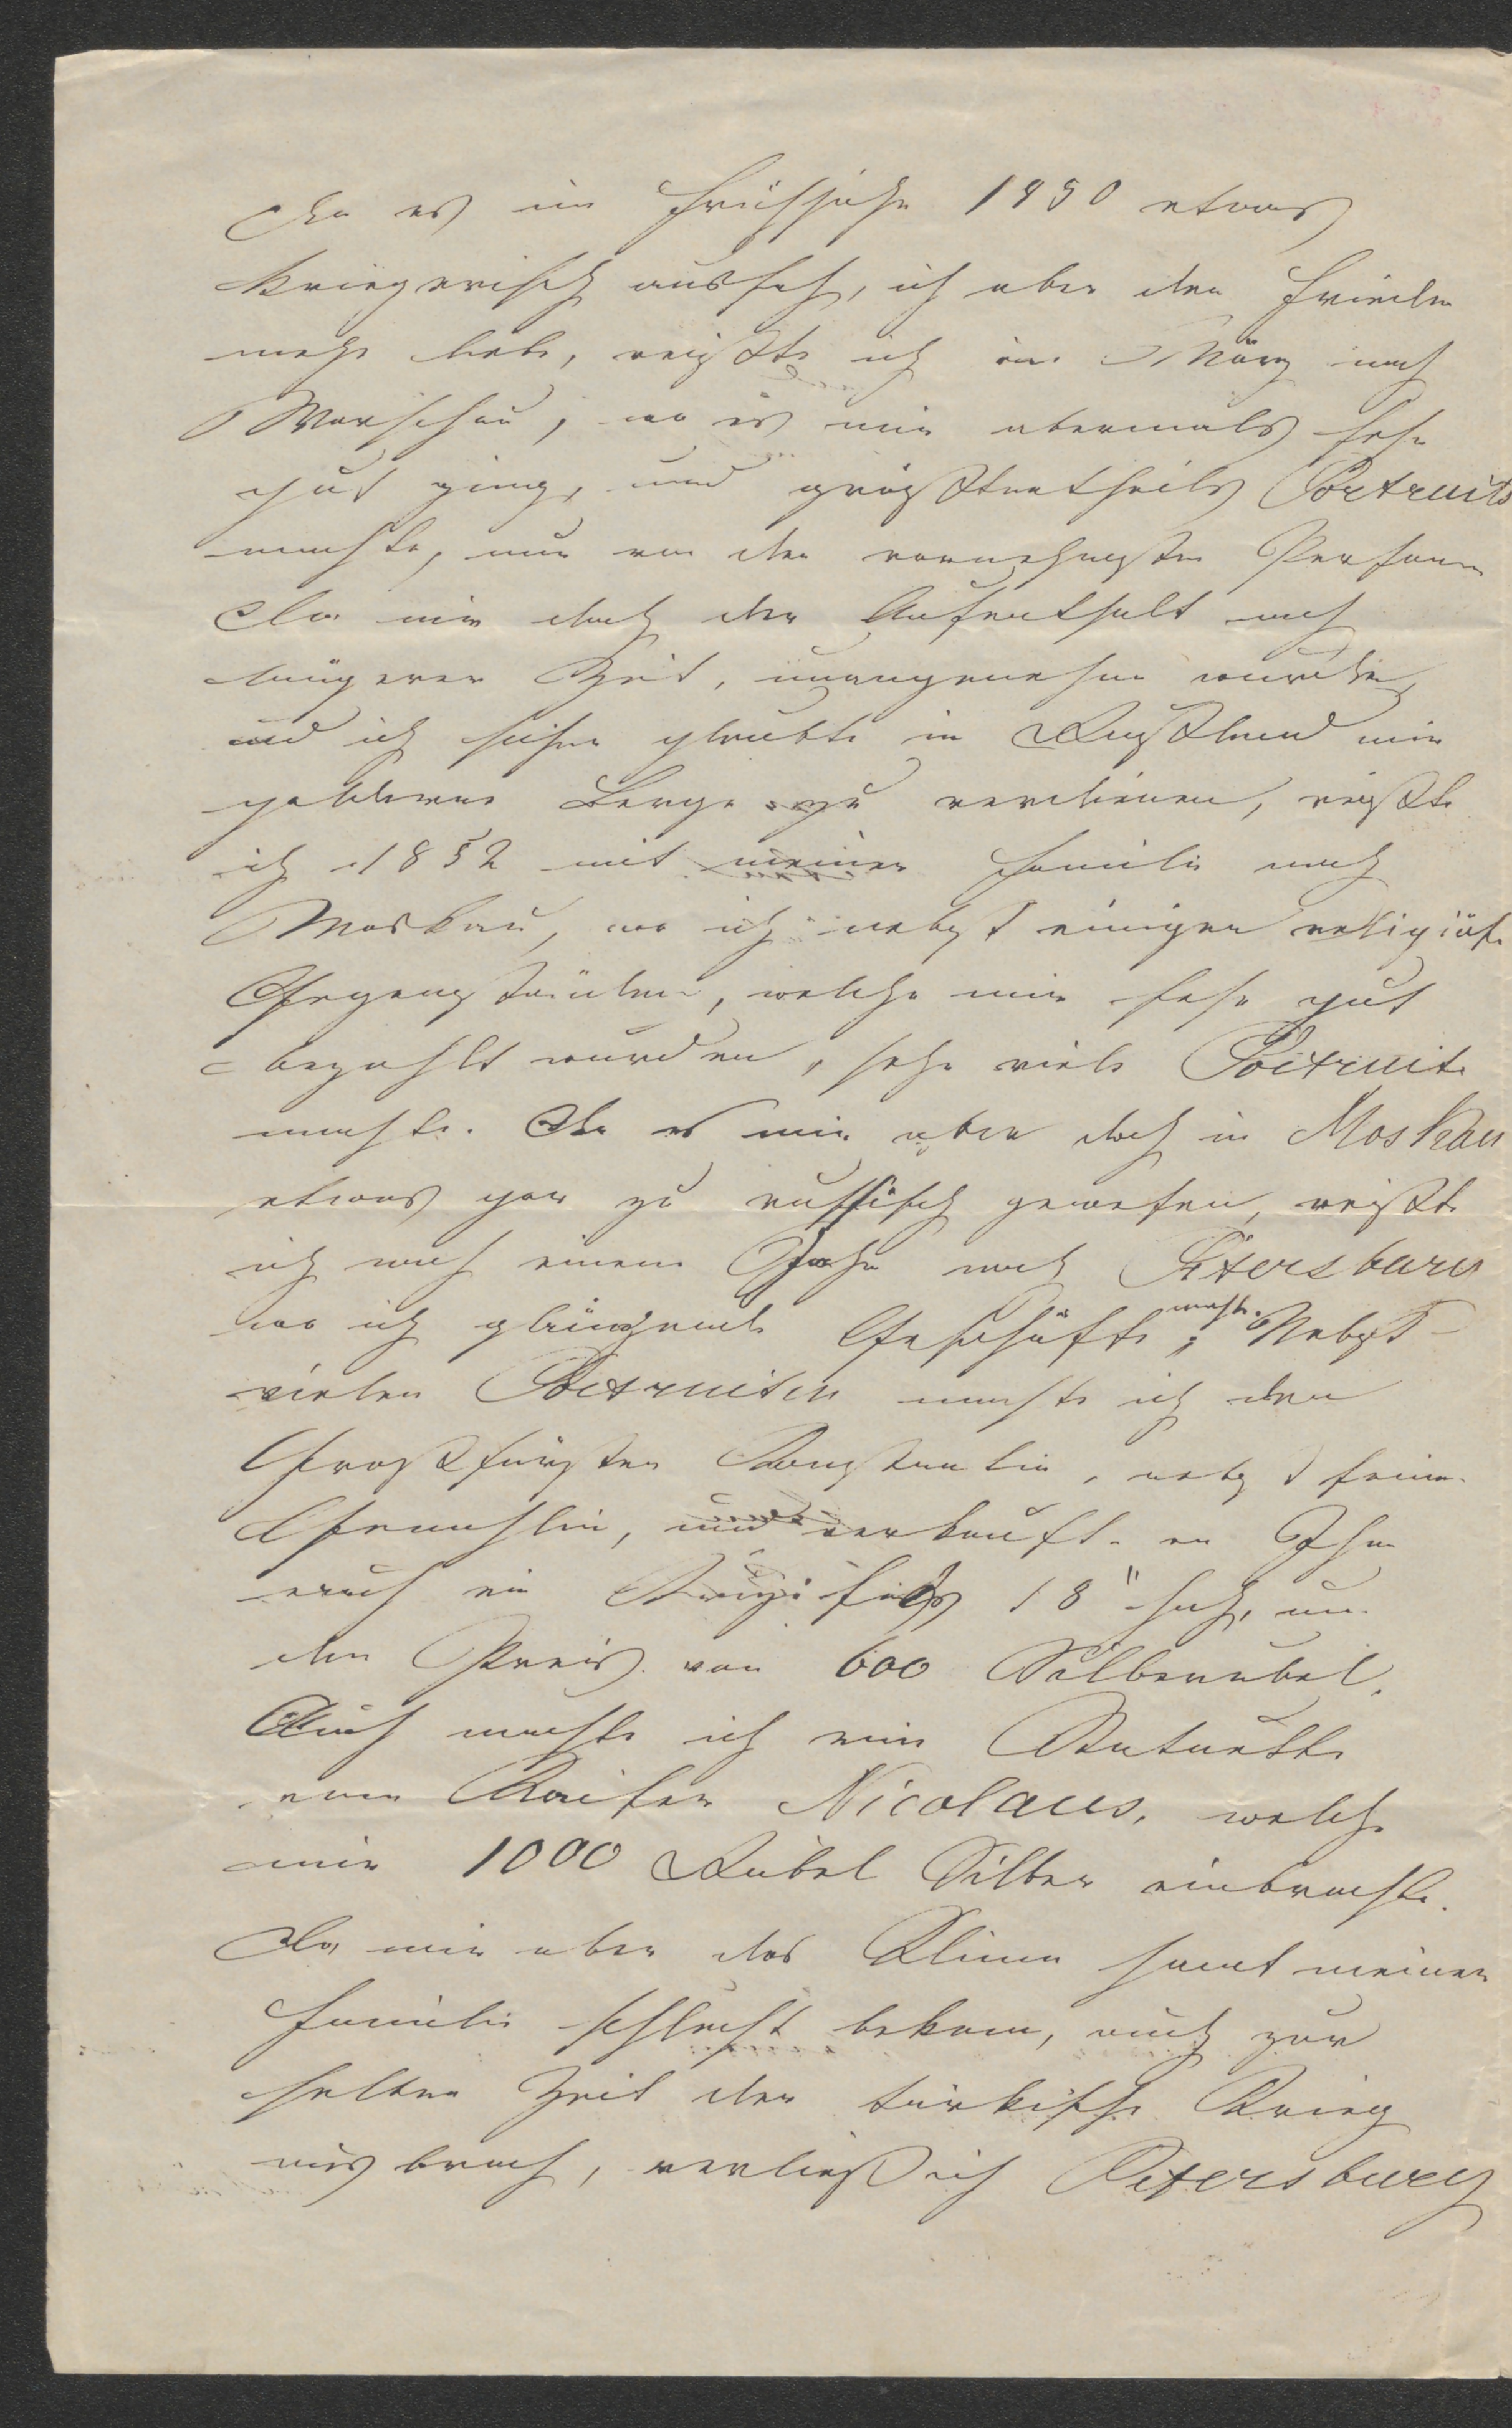 Da es im Frühjahr 1850 etwas
kriegerisch aussah, ich aber den Frieden
mehr liebe, reißte ich im März nach
Warschau, wo es mir abermals sehr
gut ging, und größtentheils Portraits
machte, nur von den vornehmsten Personen
Da mir doch der Aufenthalt nach
längerer Zeit, unangenehm wurde,
und ich sicher glaubte in Rußland mir
goldene Berge zu verdienen, reißte
ich 1852 mit meiner Familie nach
Moskau, wo ich nebst einigen religiös
Gegenständen, welche mir sehr gut
bezahlt wurden, sehr viele Portraite
machte. Da es mir aber doch in Moskau
etwas gar zu russisch gewesen, reißte
ich nach einem Jahr nach Petersburg
wo ich glänzende Geschäfte machte; Nebst
vielen Portraiten machte ich den
Großfürsten Konstantin, nebst seiner
Gemahlin, und verkaufte an Ihm
auch ein Kruzifix 18" hoch, um
den Preis von 600 Silberrubel.
Auch machte ich eine Statuette
vom Kaiser Nicolaus, welche
mir 1000 Rubel Silber einbrachte.
Da mir aber das Klima samt meiner
Familie schlecht bekam, auch zur
selben Zeit der türkische Krieg
aus brach, verließ ich Petersburg